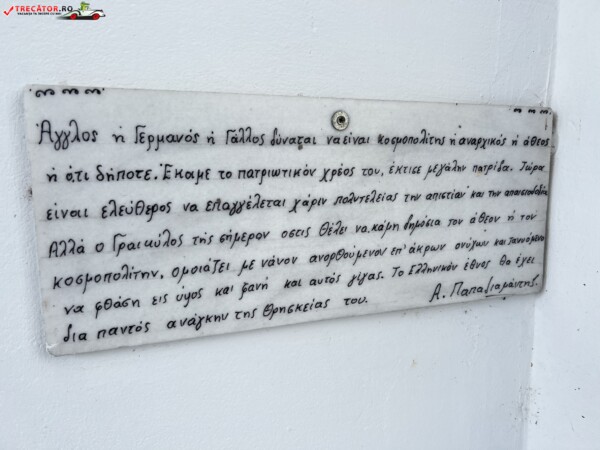 TRECĂTOR.RO
Άγγλος ή Γερμανός ή Γάλλος δύναται να είναι κοσμοπολίτης ή αναρχικός ή άθεος
ή ό,τι δήποτε. Έκαμε το πατριωτικόν χρέος του, έκτισε μεγάλην πατρίδα. Τώρα
είναι ελεύθερος να επαγγέλεται χάριν πολυτελείας την απιστίαν και την απαισιοδοξίαν
Αλλά ο Γραικύλος τής σήμερον όστις θέλει να κάμη δημόσια τον άθεον ή τον
κοσμοπολίτην, ομοιάζει με νάνον ανορθούμενον επ' άκρων ονύχων και τανυόμενο
να φθάση εις ύψος και φανή και αυτός γίγας. Το Ελληνικόν έθνος θα έχει
δια παντός ανάγκην της θρησκείας του. Α. Παπαδιαμάντης.